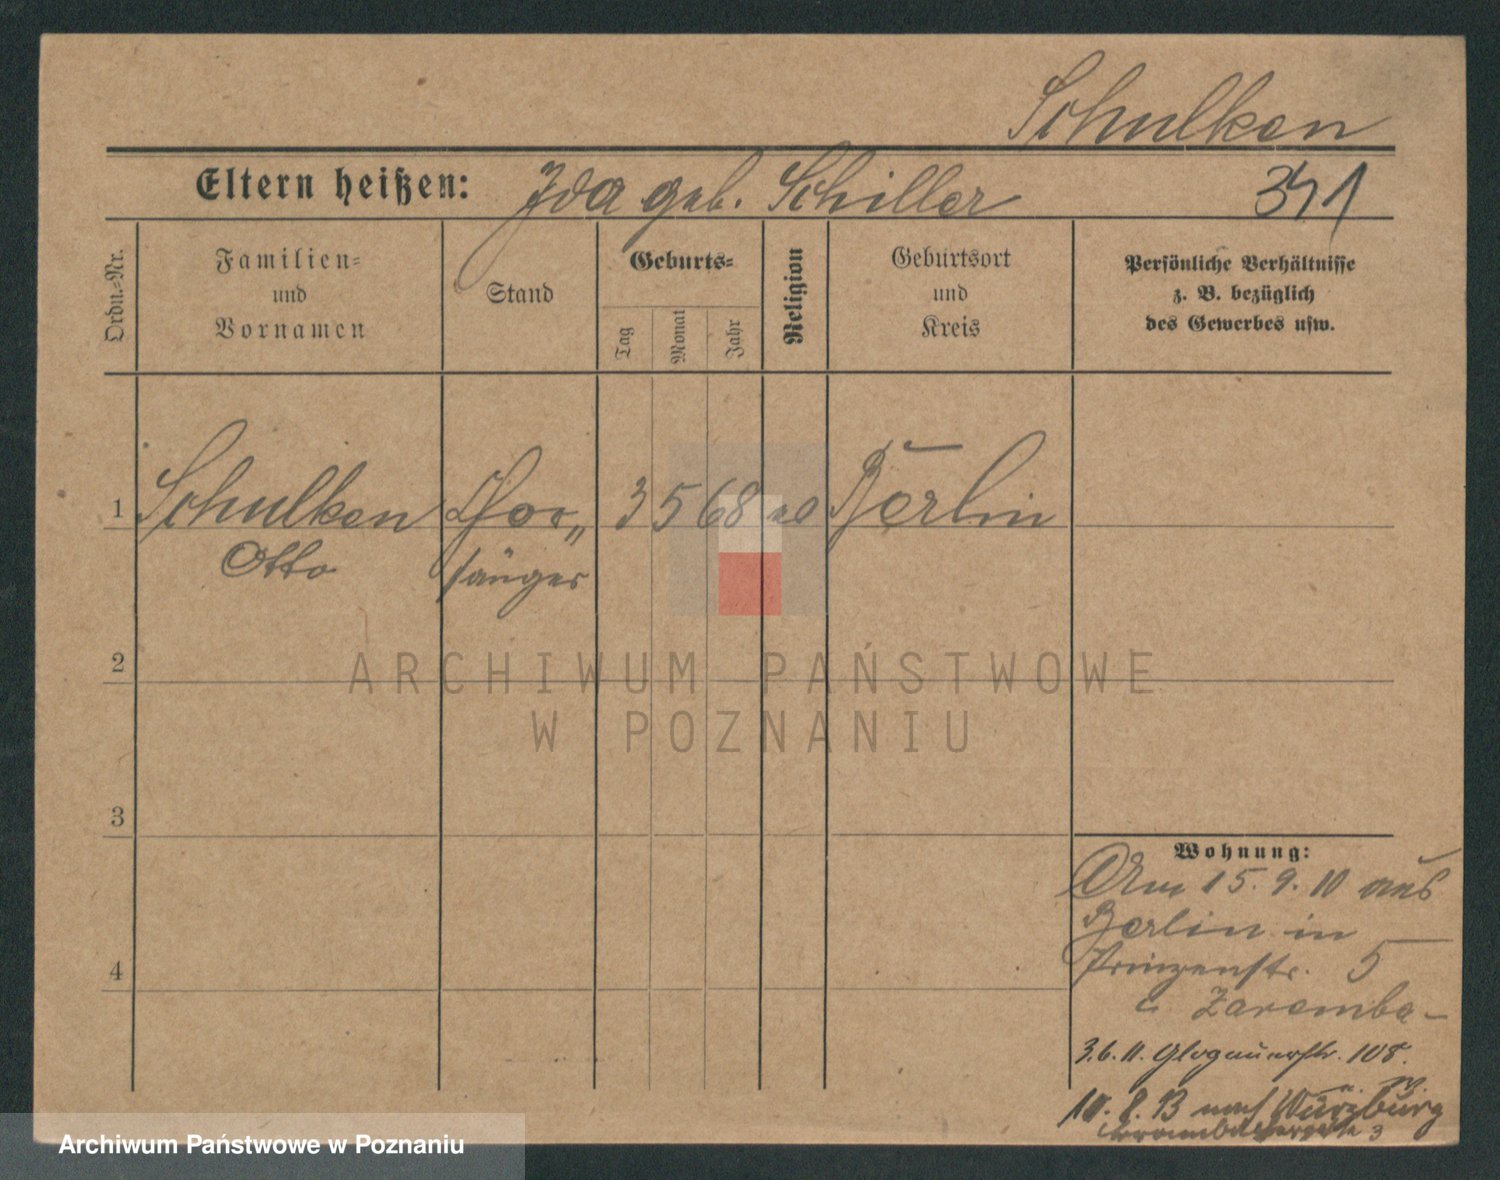 Schulken
Eltern heißen: Ida geb. Schiller 341
Ordn.-Nr.
Familien-
und
Vornamen
Stand
Geburts-
Tag
Monat
Jahr
Religion
Geburtsort
und
Kreis
Persönliche Verhältnisse
z. B. bezüglich
des Gewerbes usw.
1 Schulken Chor„ 3 5 68 Berlin
Otto sänger
2
ARCHIWUM PAŃSTWOWE
W POZNANIU
3
Wohnung:
Am 15.9.10 aus
Berlin in
4
Prinzenstr. 5
Zaremba
3.6.11. Glogauerstr. 108.
10. 8. 13 nach Würzburg
3
Archiwum Państwowe w Poznaniu